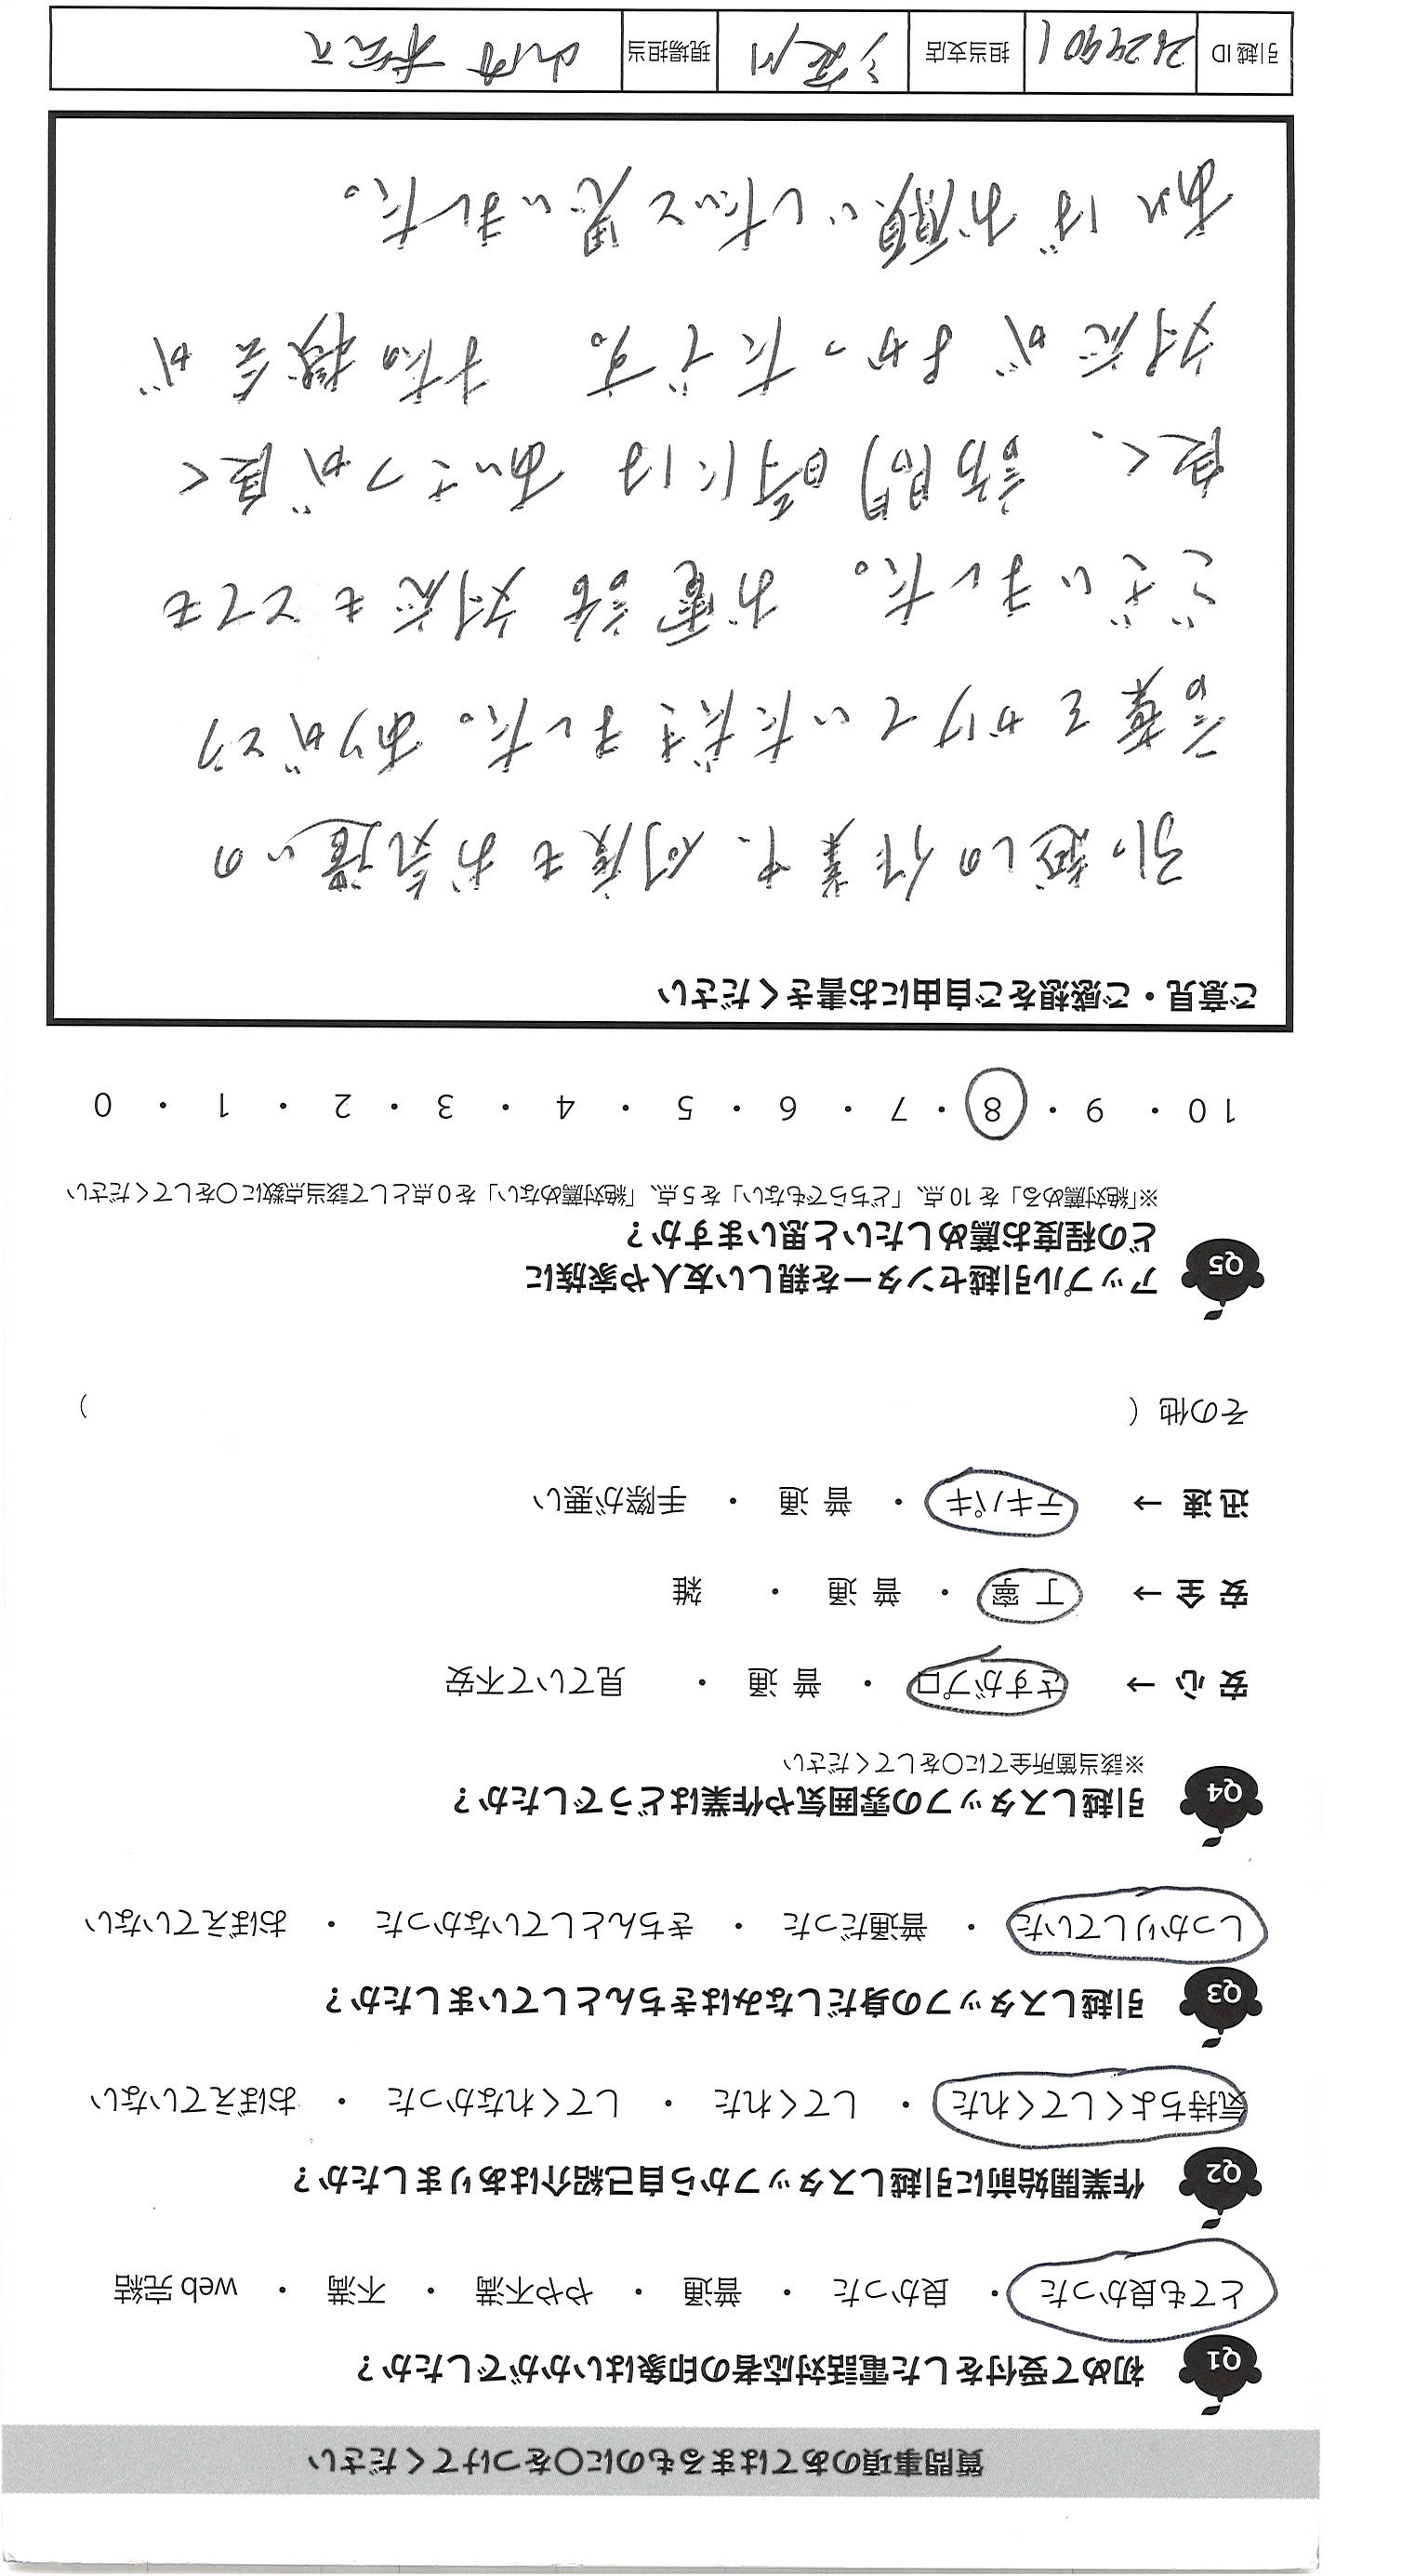 質問事項のあてはまるものに〇をつけてください
Q1 初めて受付をした電話対応者の印象はいかがでしたか？
とても良かった ・ 良かった ・ 普通 ・ やや不満 ・ 不満 ・ web 完結
Q2 作業開始前に引越しスタッフから自己紹介はありましたか？
気持ちよくしてくれた ・ してくれた ・ してくれなかった ・ おぼえていない
Q3 引越しスタッフの身だしなみはきちんとしていましたか？
しっかりしていた ・ 普通だった ・ きちんとしていなかった ・ おぼえていない
Q4 引越しスタッフの雰囲気や作業はどうでしたか？
※該当箇所全てに〇をしてください
安 心 → さすがプロ ・ 普 通 ・ 見ていて不安
安 全 → 丁 寧 ・ 普 通 ・ 雑
迅 速 → テキパキ ・ 普 通 ・ 手際が悪い
その他（ ）
Q5 アップル引越センターを親しい友人や家族に
どの程度お薦めしたいと思いますか？
※「絶対薦める」を 10 点、「どちらでもない」を 5 点、「絶対薦めない」を 0 点として該当点数に〇をしてください
10 ・ 9 ・ 8 ・ 7 ・ 6 ・ 5 ・ 4 ・ 3 ・ 2 ・ 1 ・ 0
ご意見・ご感想をご自由にお書きください
引っ越しの作業中、何度もお気遣いの
言葉をかけていただきました。ありがとう
ございました。お電話対応もとても
良く、訪問時にはあいさつが良く
対応がよかったです。また機会が
あればお願いしたいと思いました。
引越 ID 2624901 担当支店 現場担当 山内